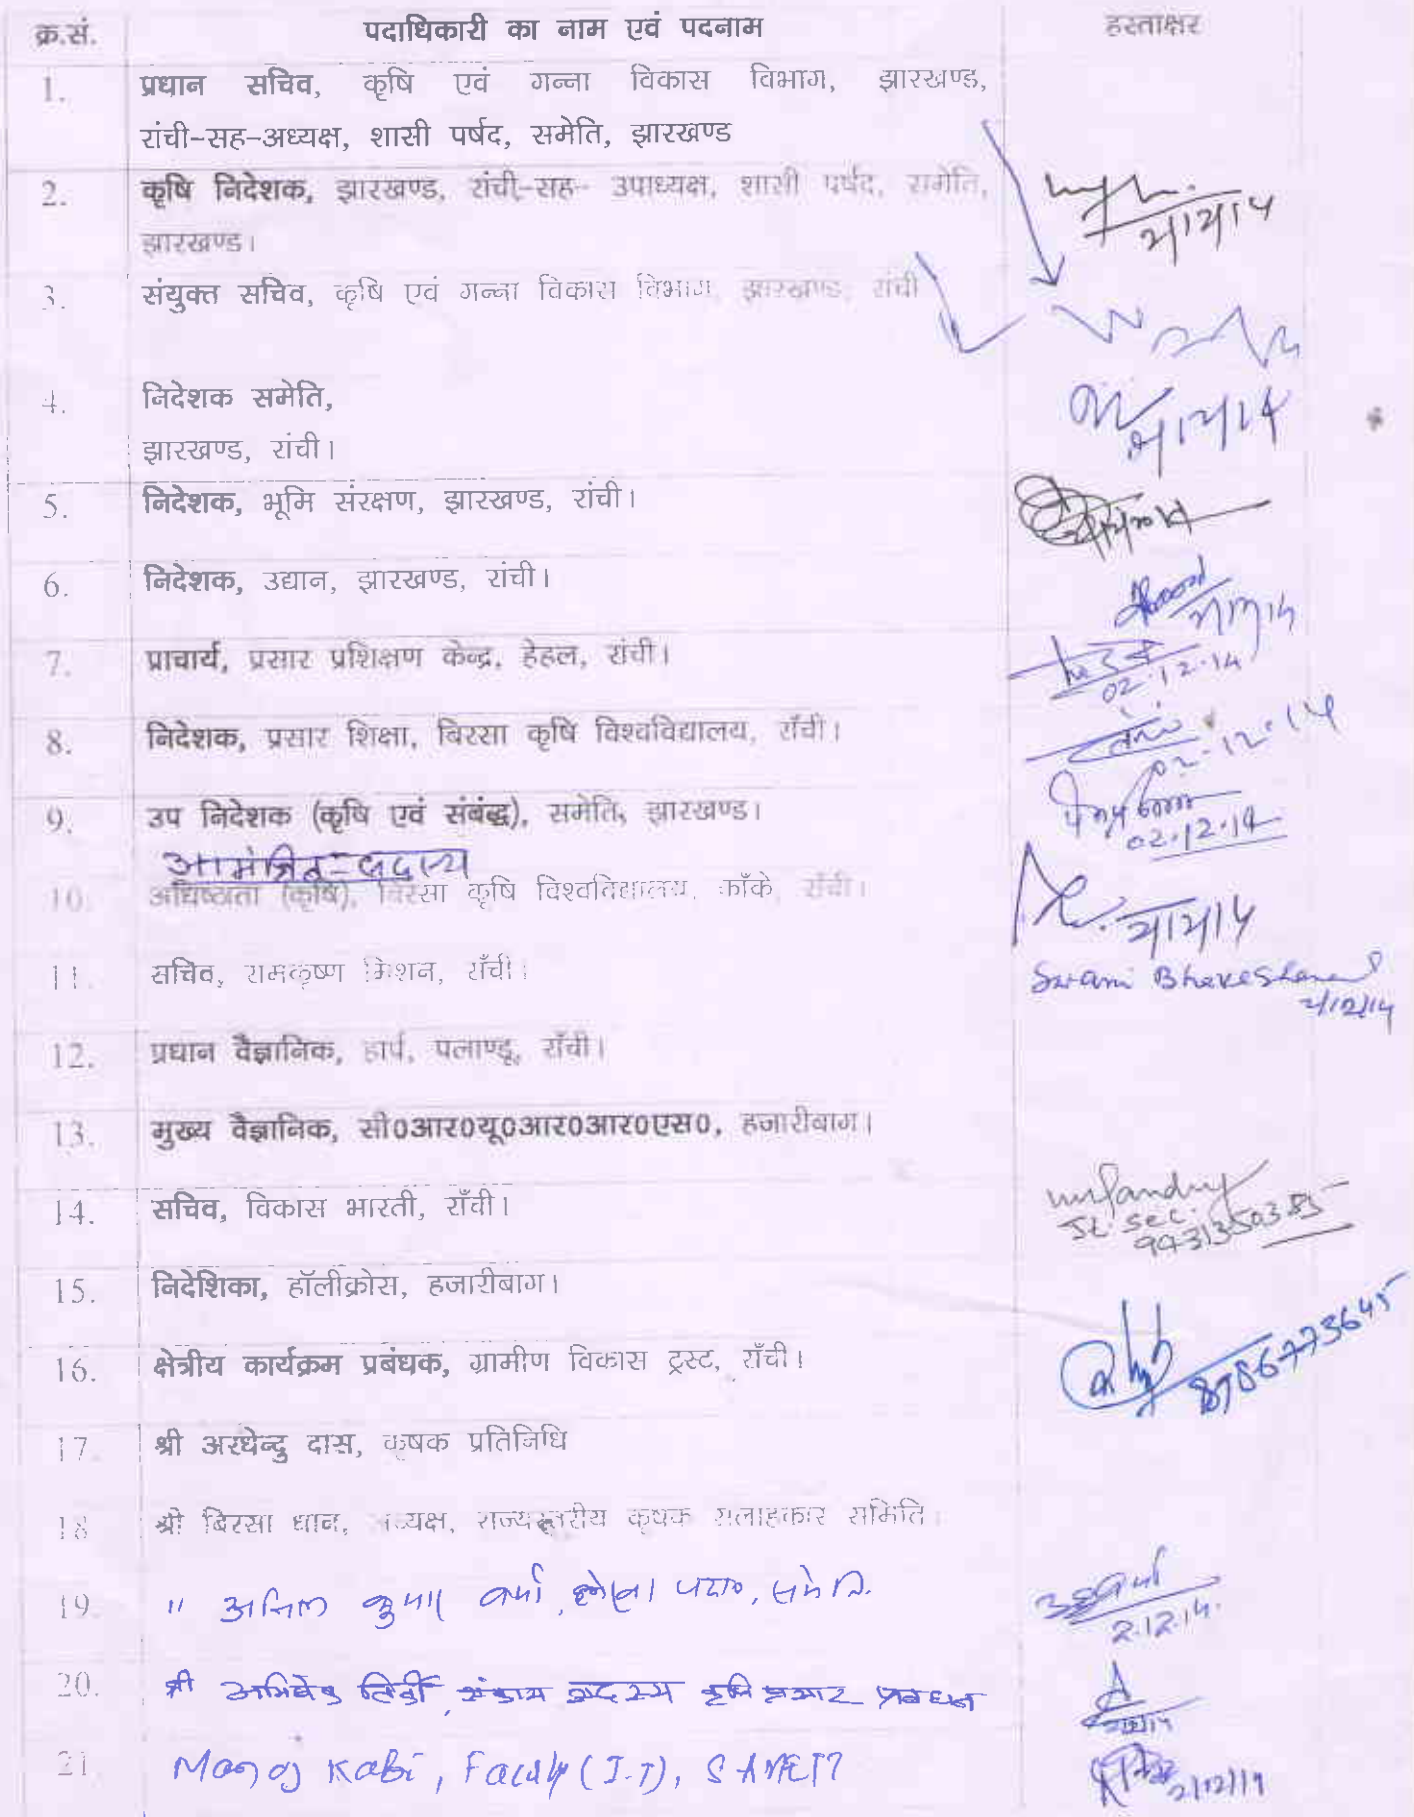 क्र.सं. पदाधिकारी का नाम एवं पदनाम हस्ताक्षर
1. प्रधान सचिव, कृषि एवं गन्ना विकास विभाग, झारखण्ड,
रांची-सह-अध्यक्ष, शासी पर्षद, समेति, झारखण्ड
2. कृषि निदेशक, झारखण्ड, रांची-सह- उपाध्यक्ष, शासी पर्षद, समेति,
झारखण्ड।
3. संयुक्त सचिव, कृषि एवं गन्ना विकास विभाग, झारखण्ड, रांची
4. निदेशक समेति,
झारखण्ड, रांची।
5. निदेशक, भूमि संरक्षण, झारखण्ड, रांची।
6. निदेशक, उद्यान, झारखण्ड, रांची।
7. प्राचार्य, प्रसार प्रशिक्षण केन्द्र, हेहल, रांची।
02.12.14
8. निदेशक, प्रसार शिक्षा, बिरसा कृषि विश्वविद्यालय, राँची।
02.12.14
9. उप निदेशक (कृषि एवं संबंद्ध), समेति, झारखण्ड।
02.12.14
आमंत्रित-सदस्य
10. अधिष्ठाता (कृषि), बिरसा कृषि विश्वविद्यालय, काँके, राँची।
11. सचिव, रामकृष्ण मिशन, राँची। Swami
2/12/14
12. प्रधान वैज्ञानिक, हार्प, पलाण्डू, राँची।
13. मुख्य वैज्ञानिक, सी0आर0यू0आर0आर0एस0, हजारीबाग।
14. सचिव, विकास भारती, राँची।
Jt. Sec.
9931350385
15. निदेशिका, हॉलीक्रोस, हजारीबाग।
16. क्षेत्रीय कार्यक्रम प्रबंधक, ग्रामीण विकास ट्रस्ट, राँची।
17. श्री अरधेन्दु दास, कृषक प्रतिनिधि
18 श्री बिरसा धान, अध्यक्ष, राज्यस्तरीय कृषक सलाहकार समिति।
19. " अनिल कुमार वर्मा, लेखा पदा०, समेति.
2.12.14.
20. श्री अभिषेक तिर्की, संकाय सदस्य कृषि प्रसार प्रबंधन
21 Manoj Kabi, Faculty (I.T), SAMETI
2/12/14